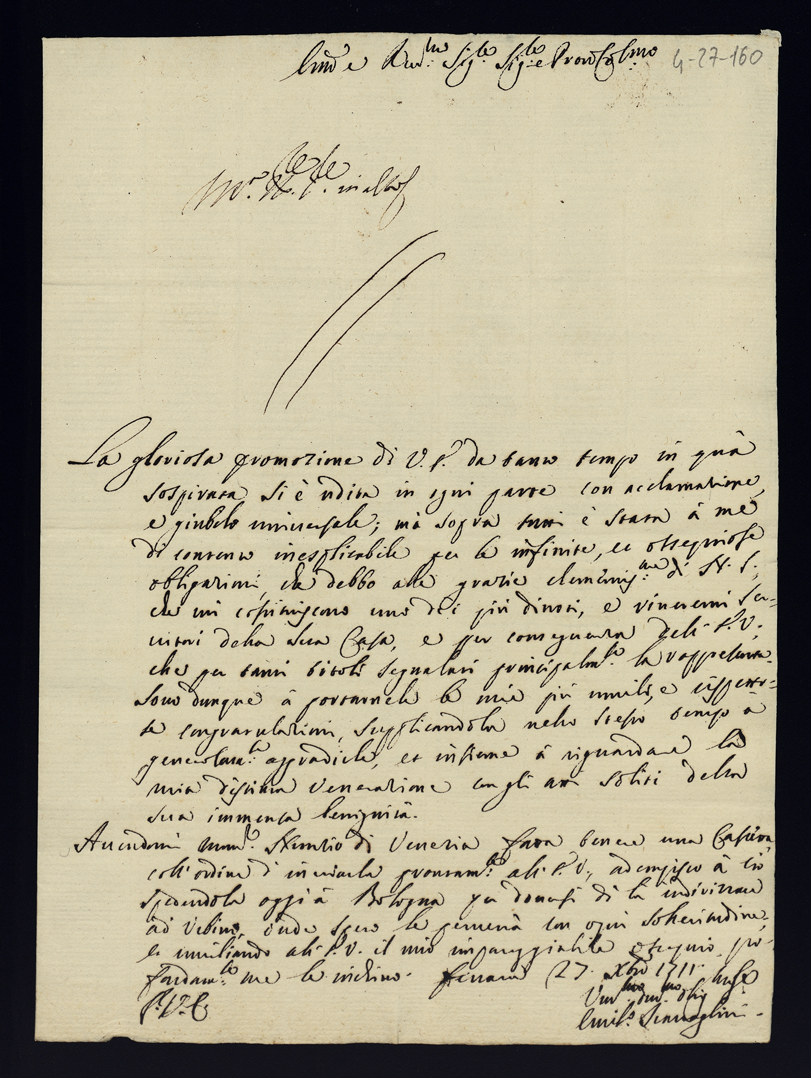 Em̃o e Rmo: Sigre Sigre e Prone Colmo
4-27-160
La gloriosa promozione di V. E. da tanto tempo in quà
sospirata si è udita in ogni parte con acclamazione,
e giubelo universale; mà sopra tutti è stata à me
di contento inesplicabile per le infinite, et ossequiose
obligazioni, che debbo alle grazie clementisme di N. S.,
che mi costituiscono uno dei più divoti, e vincerati Ser-
vitori della sua Casa, e per conseguenza dell' E. V.,
che per tanti titoli segnalati principalmte la rappresenta.
Sono dunque à portarnele le mie più umili, e rispetto-
se congratulazioni, supplicandola nello stesso tempo à
generolamte aggradirle, et insieme à riguardare la
mia distinta venerazione con gli atti soliti della
sua immensa benignità.
Avendomi Monsr Nunzio di Venezia fatto tenere una
coll' ordine d' inviarla prontamte all' E. V., adempisco à ciò
spedendola oggi à Bologna per doversi di là indirizzare
ad Urbino, onde spero le perverrà con ogni sollecitudine,
et umiliando all' E. V. il mio impareggiabile ossequio pro-
fondamte me le inchino. Ferrara 27. Xbre 1711.
Umo devmo oblig